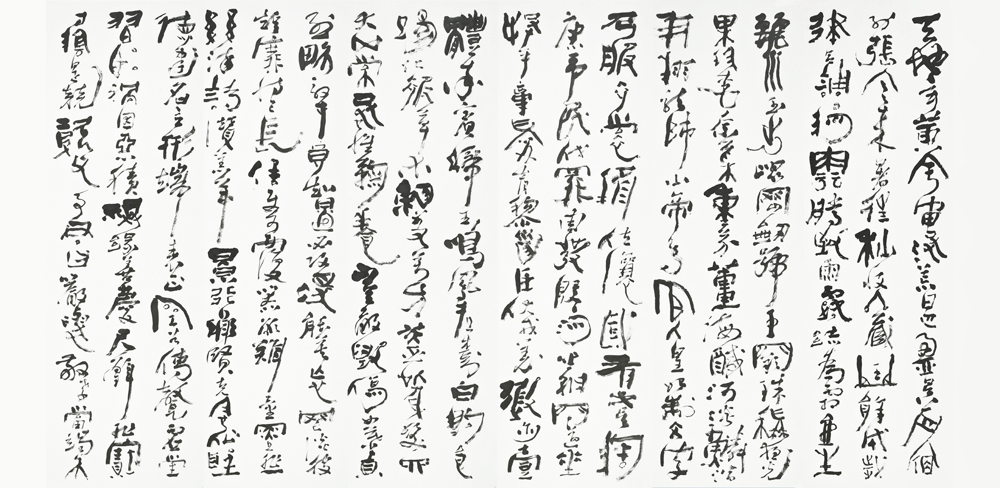 天地玄黃宇宙洪荒日月盈昃辰宿
列張寒來暑往秋收冬藏閏餘成歲
律呂調陽雲騰致雨露結為霜金生
麗水玉出崑岡劍號巨闕珠稱夜光
果珍李柰菜重芥薑海鹹河淡鱗潛
羽翔龍師火帝鳥官人皇始制文字
乃服衣裳推位讓國有虞陶唐
弔民伐罪周發殷湯坐朝問道垂
拱平章愛育黎首臣伏戎羌遐邇壹
體率賓歸王鳴鳳在竹白駒食
場化被草木賴及萬方蓋此身髮四
大五常恭惟鞠養豈敢毀傷女慕貞
潔男效才良知過必改得能莫忘罔談彼
短靡恃己長信使可覆器欲難量墨悲絲
染詩讚羔羊景行維賢克念作聖
德建名立形端表正空谷傳聲虛堂
習聽禍因惡積福緣善慶尺璧非寶
寸陰是競資父事君曰嚴與敬孝當竭力